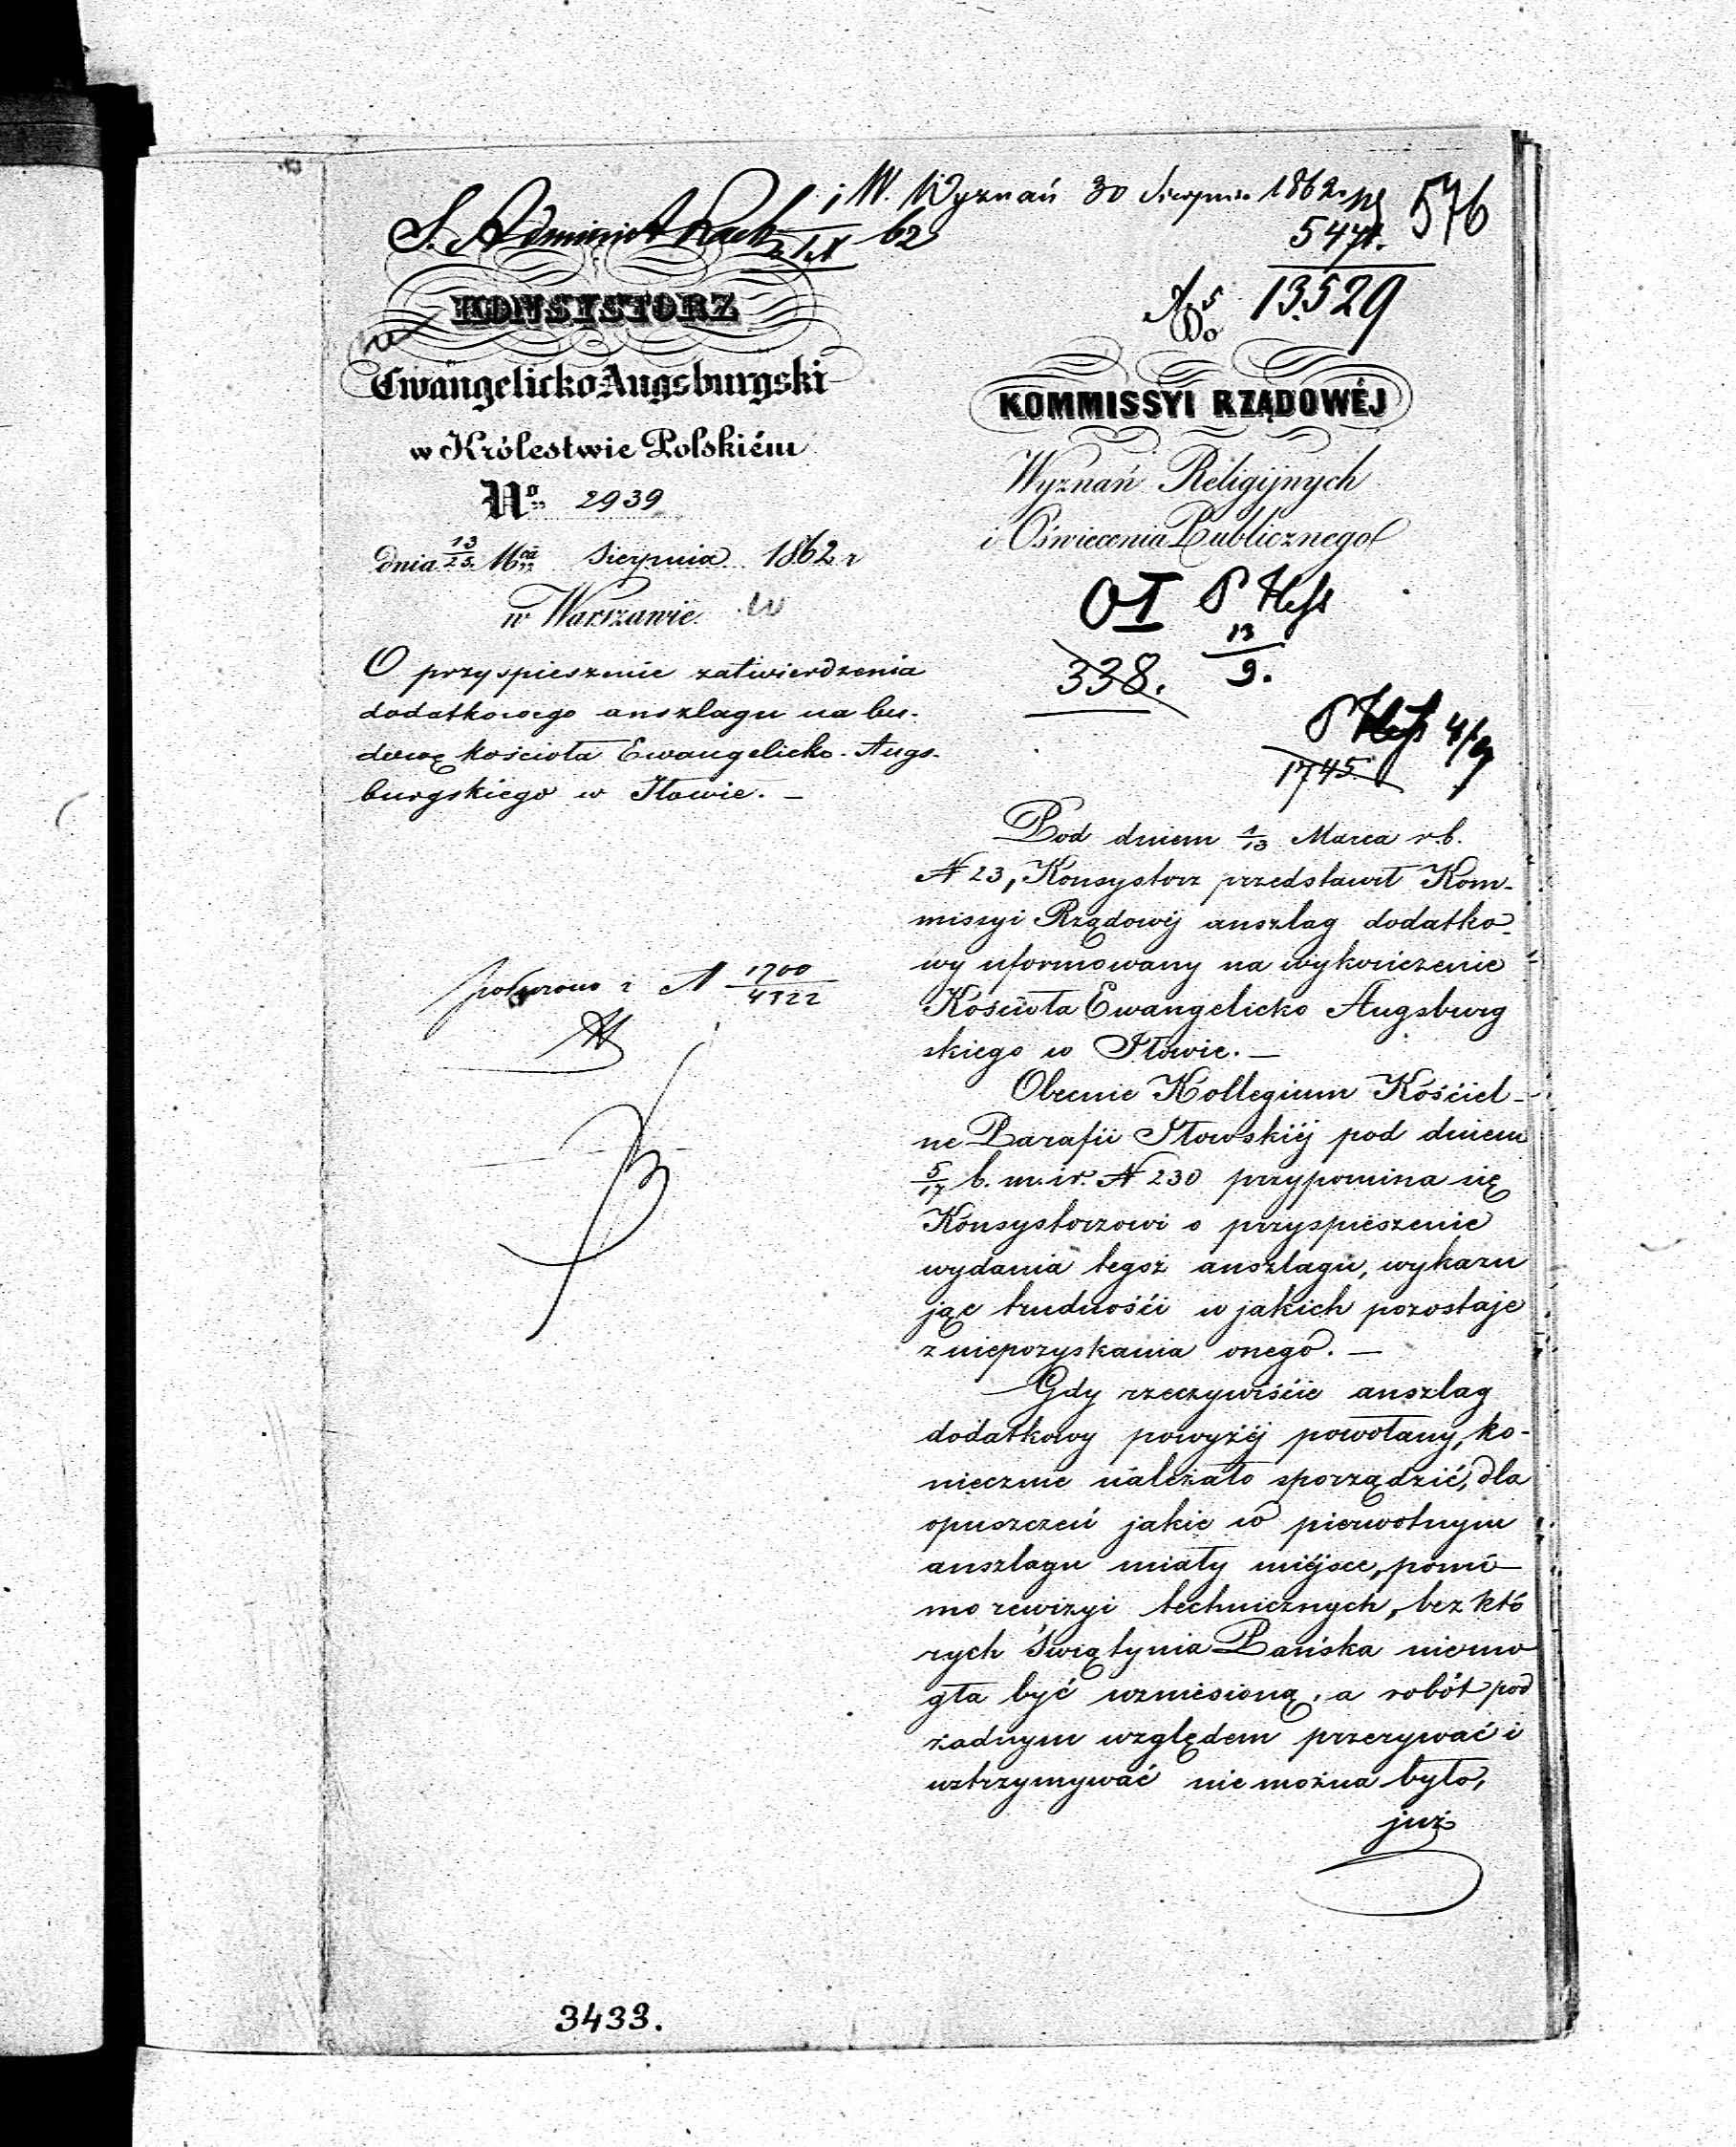 W. Wyznań 30 Sierpnia 1862
547
576
S. Administ Rach
62
No 13529
KONSYSTORZ
Ewangelicko-Augsburgski
w Królestwie Polskiém
No 2939
dnia 13/25 Mca Sierpnia 1862 r
w Warszawie.
O przyspieszenie zatwierdzenia
dodatkowego anszlagu na bu-
dowę kościoła Ewangelicko-Augs-
burgskiego w Iłowie. —
1700
4322
Do
KOMMISSYI RZĄDOWÉJ
Wyznań Religijnych
i Oświecenia Publicznego
OI P Hess
13
9.
338.
P Hess 4/9
1745
Pod dniem 1/13 Marca r.b.
N 23, Konsystorz przedstawił Kom-
missyi Rządowéj anszlag dodatko-
wy uformowany na wykończenie
Kościoła Ewangelicko Augsburg
skiego w Iłowie. —
Obecnie Kollegium Kościel-
ne Parafii Iłowskiéj pod dniem
5/17 b. m. i r. N 230 przypomina się
Konsystorzowi o przyspieszenie
wydania tegoż anszlagu, wykazu
jąc trudności w jakich pozostaje
z niepozyskania onego. —
Gdy rzeczywiście anszlag
dodatkowy powyżéj powołany, ko-
niecznie należało sporządzić, dla
opuszczeń jakie w pierwotnym
anszlagu miały miéjsce, pomi-
mo rewizyi technicznych, bez któ
rych Świątynia Pańska niemo
gła być wzniesioną, a robót pod
żadnym względem przerywać i
wstrzymywać nie można było,
już
3433.